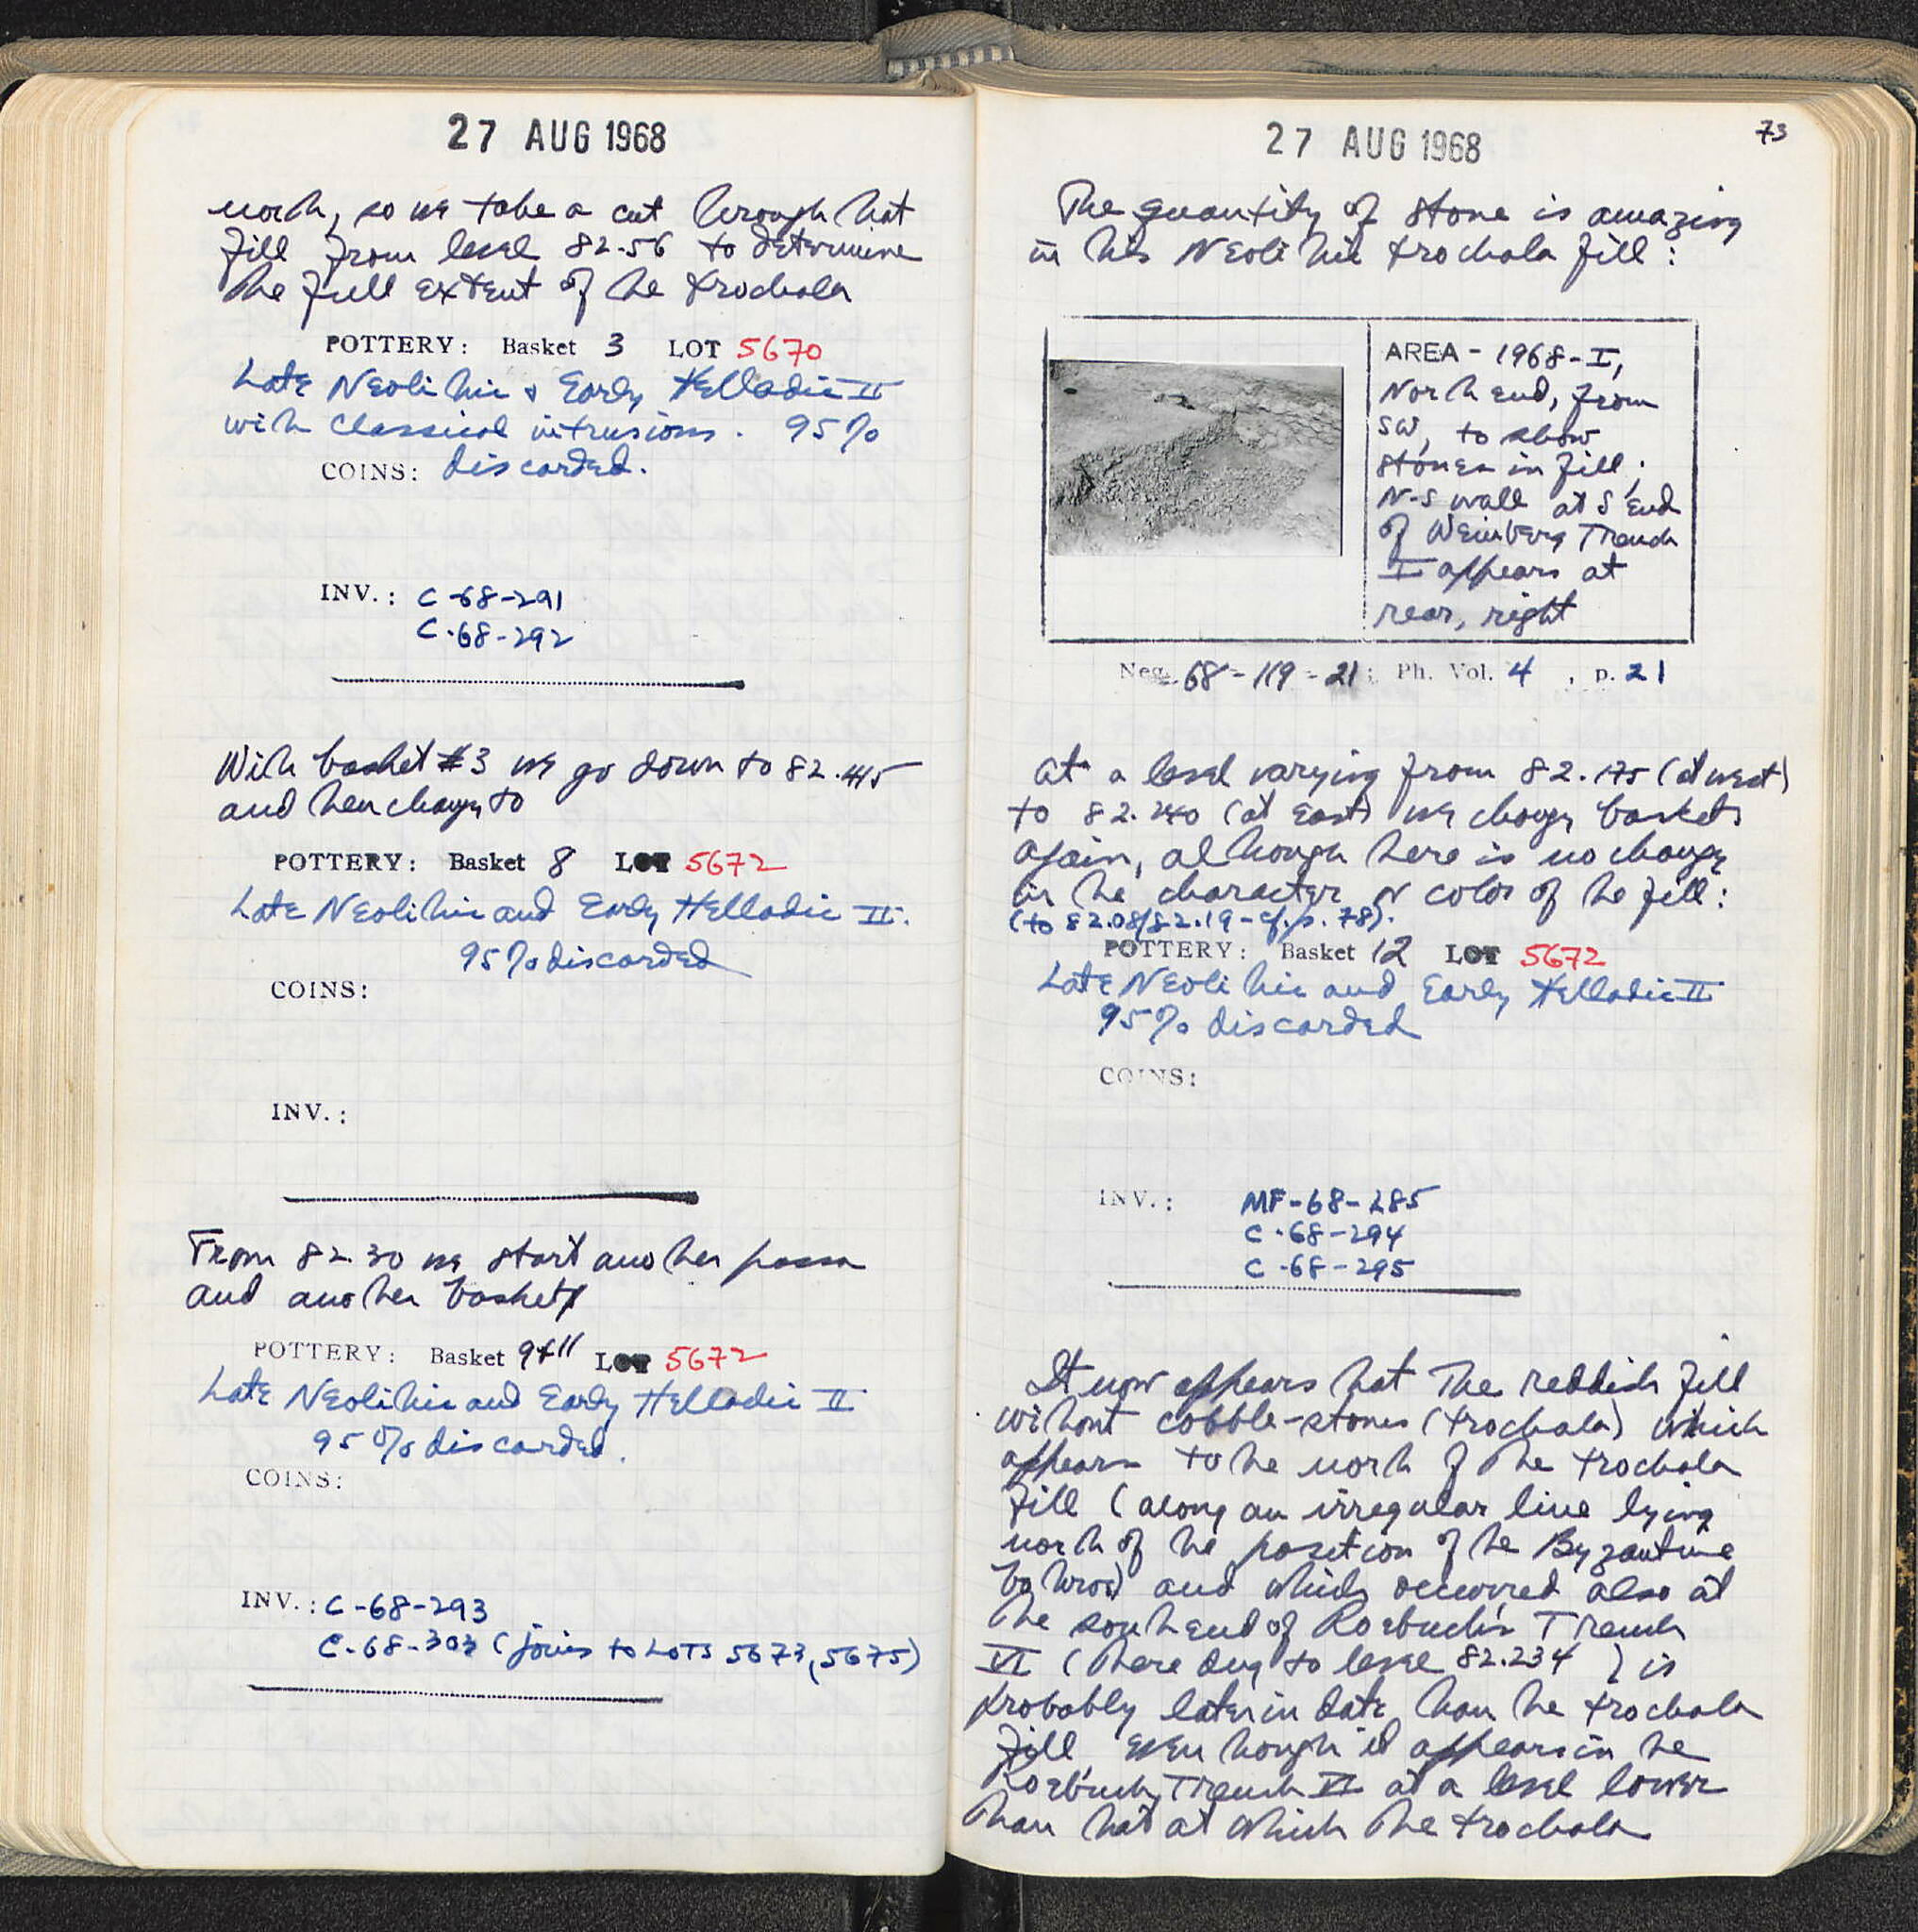 27 AUG 1968
north, so we take a cut through that
fill from level 82.56 to determine
the full extent of the trochala
POTTERY: Basket 3 LOT 5670
Late Neolithic & Early Helladic II
with Classical intrusions. 95%
COINS: discarded.
INV.: C-68-291
C-68-292
With basket #3 we go down to 82.445
and then change to
POTTERY: Basket 8 LOT 5672
Late Neolithic and Early Helladic II.
95% discarded
COINS:
INV.:
From 82.30 we start another passa
and another basket
POTTERY: Basket 9+11 LOT 5672
Late Neolithic and Early Helladic II
95% discarded.
COINS:
INV.: C-68-293
C-68-303 (joins to LOTS 5673, 5675)
27 AUG 1968
73
The quantity of stone is amazing
in this Neolithic trochala fill:
AREA - 1968-I,
North end, from
SW, to show
stones in fill;
N-S wall at S end
of Weinberg Trench
I appears at
rear, right
Neg. 68-119-21; Ph. Vol. 4, p. 21
At a level varying from 82.175 (at west)
to 82.240 (at east) we change baskets
again, although there is no change
in the character or color of the fill:
(to 82.08/82.19 - cf. p. 78).
POTTERY: Basket 12 LOT 5672
Late Neolithic and Early Helladic II
95% discarded
COINS:
INV.: MF-68-285
C-68-294
C-68-295
It now appears that the reddish fill
without cobble-stones (trochala) which
appears to the north of the trochala
fill (along an irregular line lying
north of the position of the Byzantine
bothros) and which occurred also at
the south end of Roebuck's Trench
VI (there dug to level 82.234) is
probably later in date than the trochala
fill even though it appears in the
Roebuck Trench VI at a level lower
than that at which the trochala